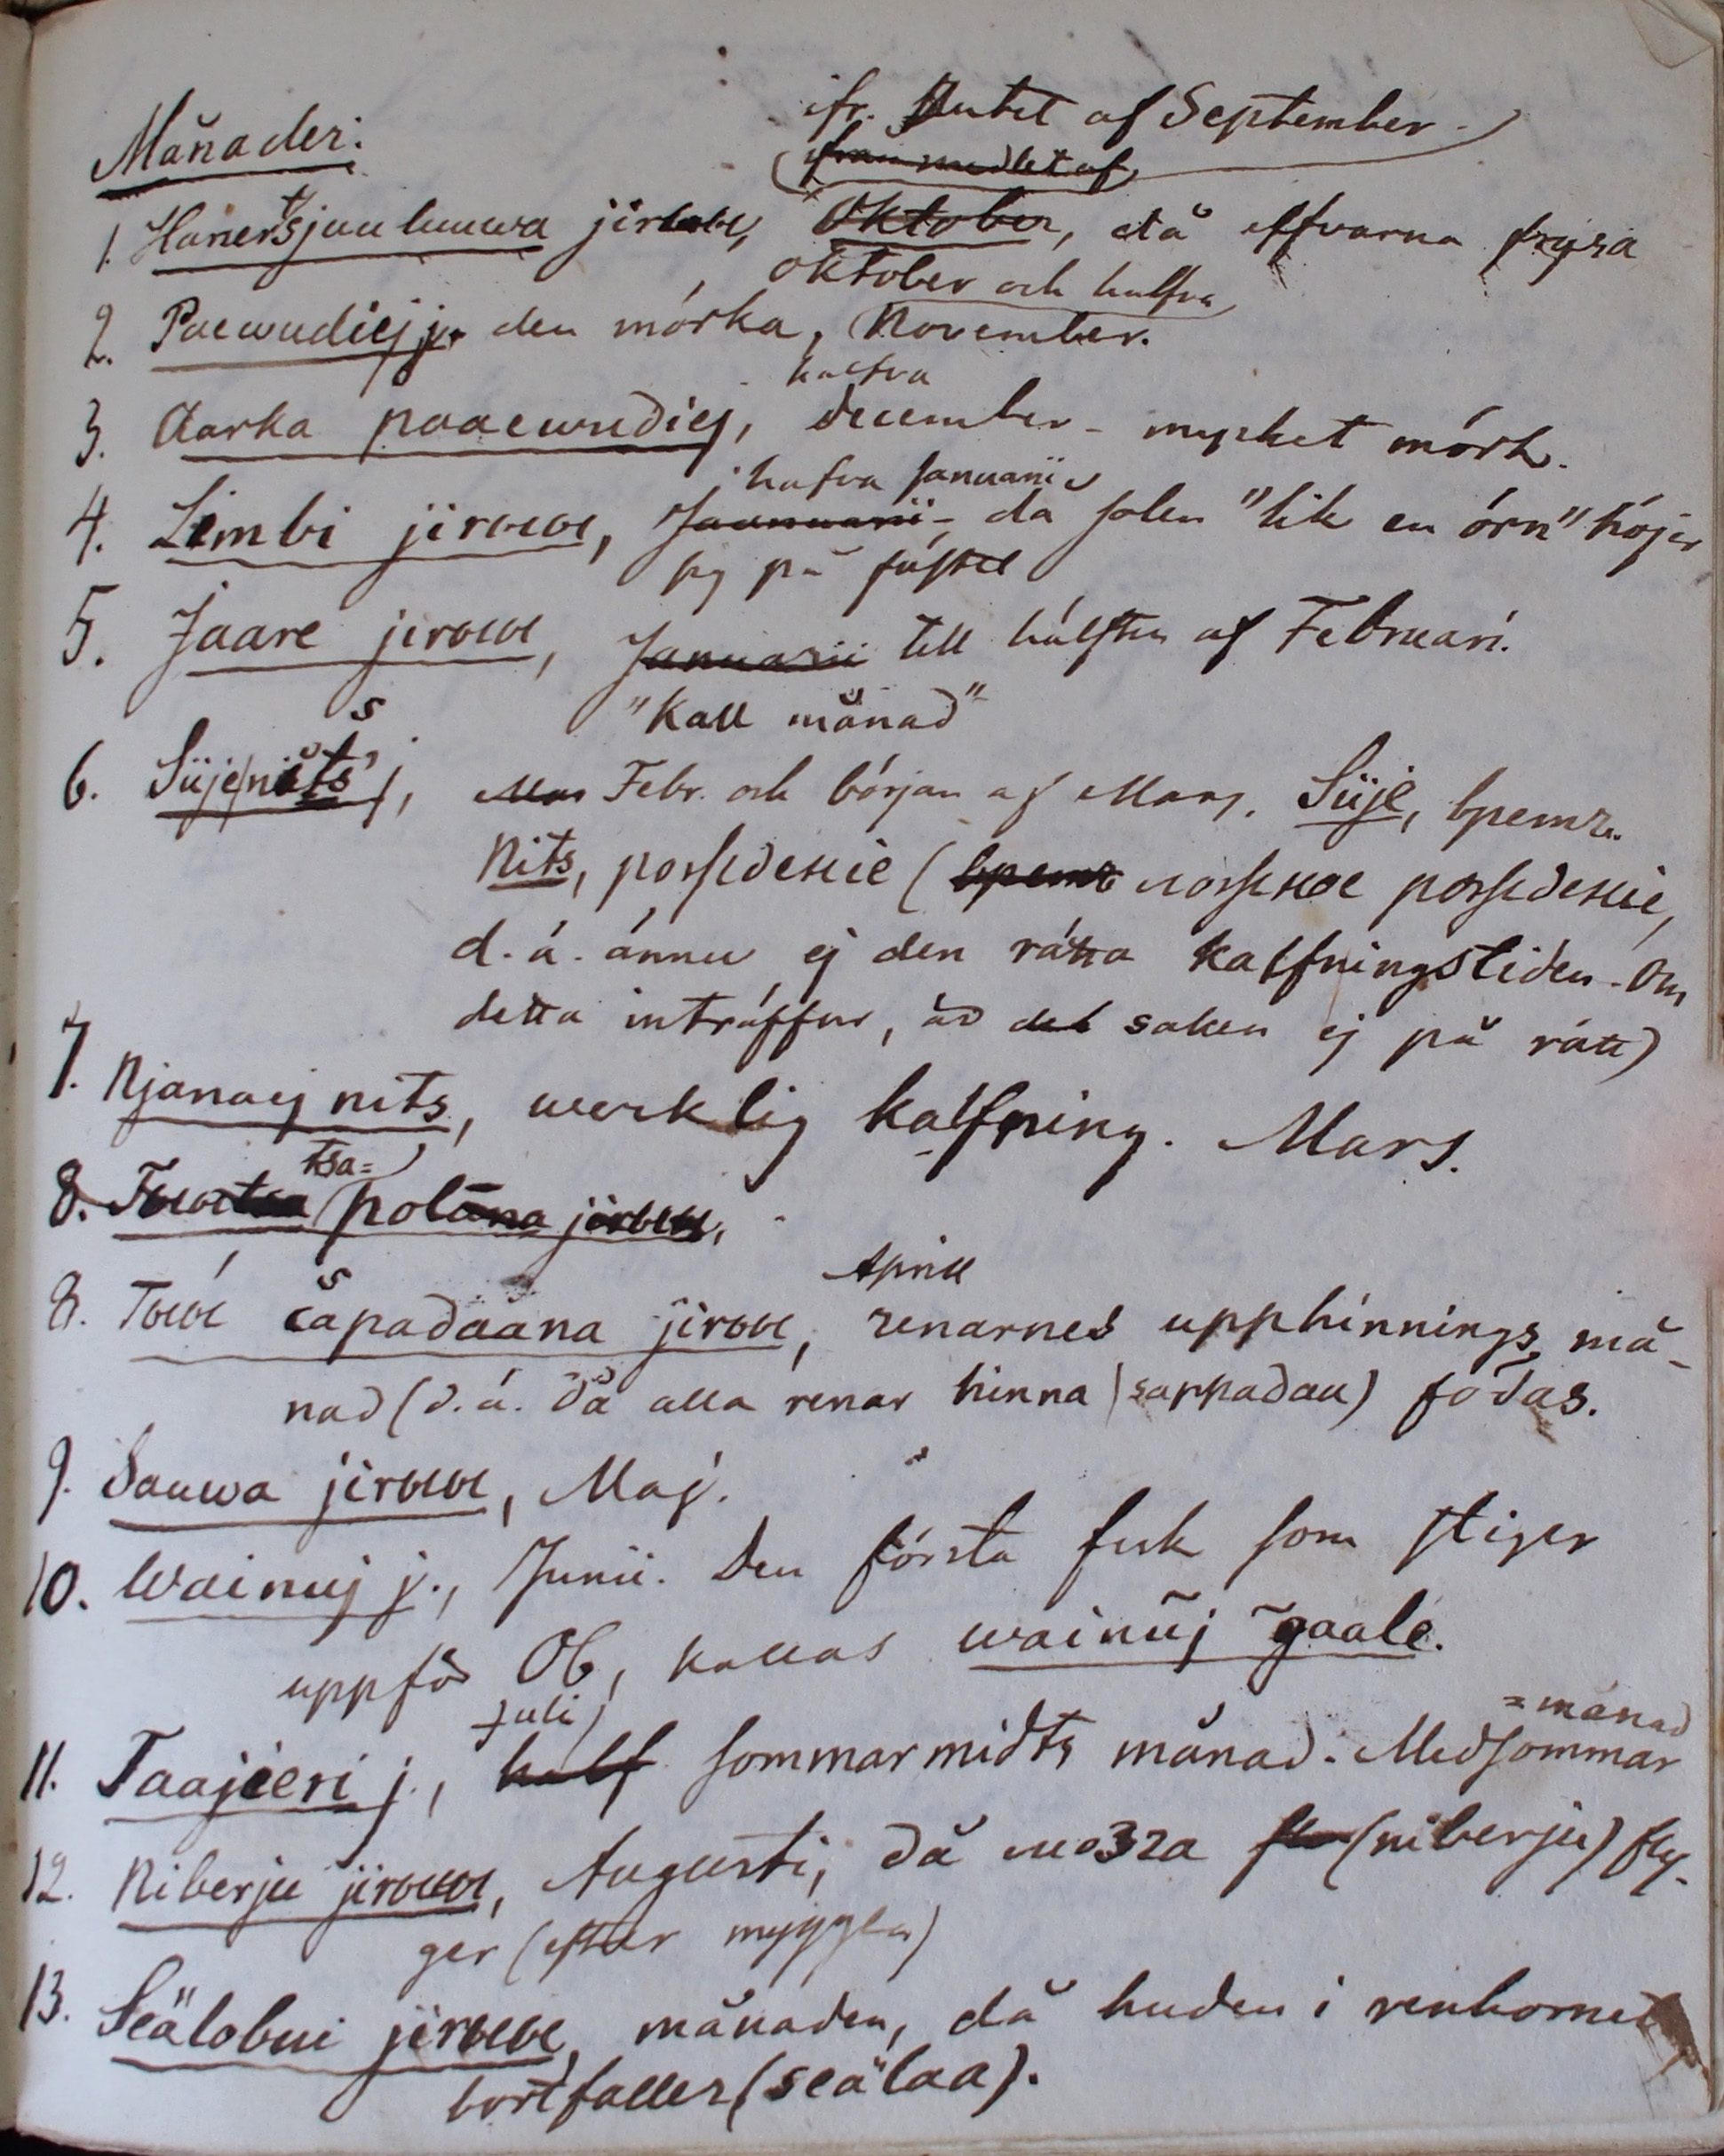 Månader.
ifr. slutet af September
från medlet af
1. Haner tsjuu luuwa jiriwe, Oktober, då elfvarna frysa
Oktober och halfva
2. Paewudiej j. den mörka, November.
halfva
3. Aarka paaewudiej, December - mycket mörk.
halfva Januarii
4. Limbi jiriwe, Januarii - då solen "lik en örn" höjer
sig på fästet
5. Jaare jiriwe, Januarii till hälften af Februari.
"Kall månad"
6. Siije nits j, Mar Febr. och början af Mars. Siije, время.
Nits, рожденіе (время ложное рожденіе,
d. ä. ännu ej den rätta kalfningstiden. Om
detta inträffar, är det saken ej på rätt)
7. Njanaej nits, werklig kalfning. Mars.
8. tsa= polāna jiriwe,
April
8. Towe sapadaana jiriwe, renarnes upphinnings må-
nad (d. ä. då alla renar hinna (sappadau) födas.
9. Sauwa jiriwe, Maj.
10. Wainuj j., Junii. Den första fisk som stiger
uppför Ob, kallas wainūj gaale.
Juli
11. Taajieri j., half sommarmidts månad. Medsommar
=månad
12. Niberju jiriwe, Augusti, då мозга (niberju) fly-
ger (efter myggen)
13. Seälobui jiriwe, månaden, då huden i renhornet
bortfaller (seälaa).